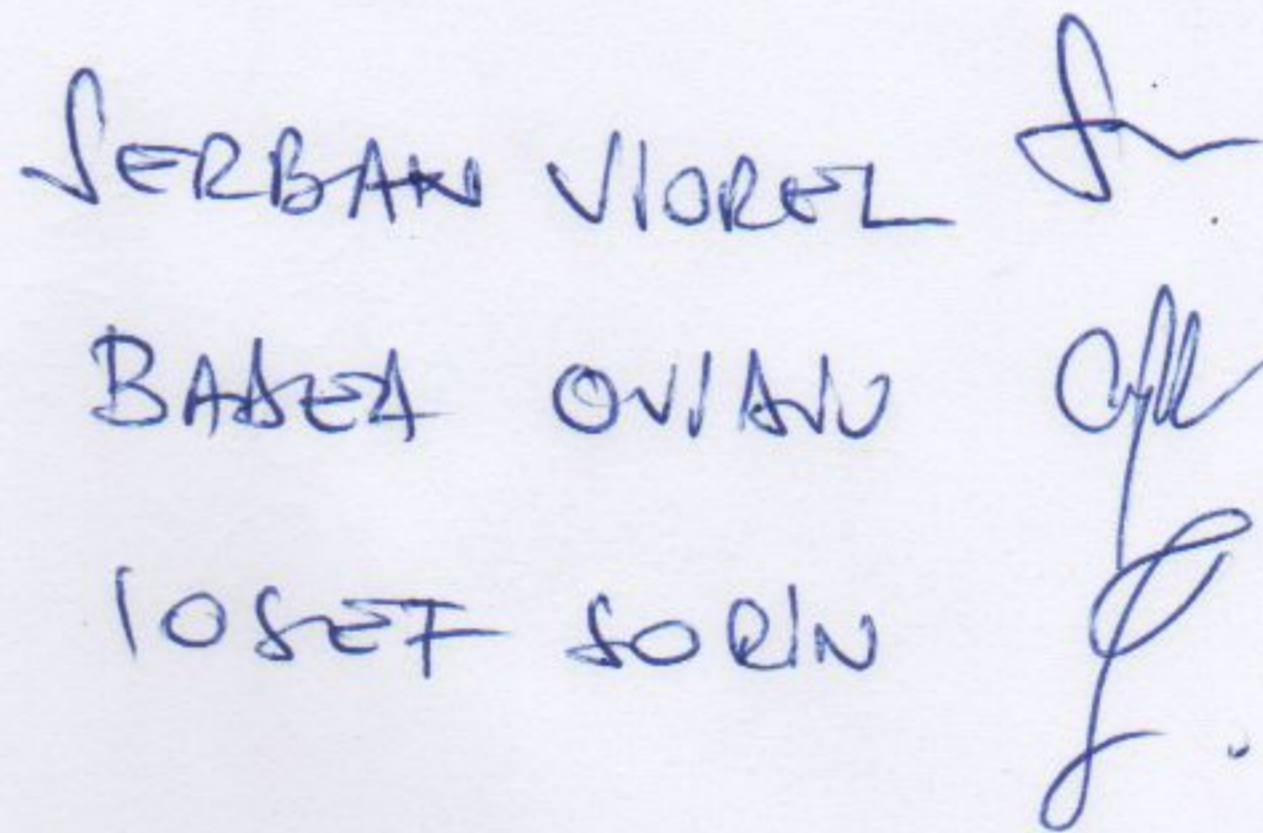 SERBAN VIOREL
BADEA OVIDIU
IOSEF SORIN